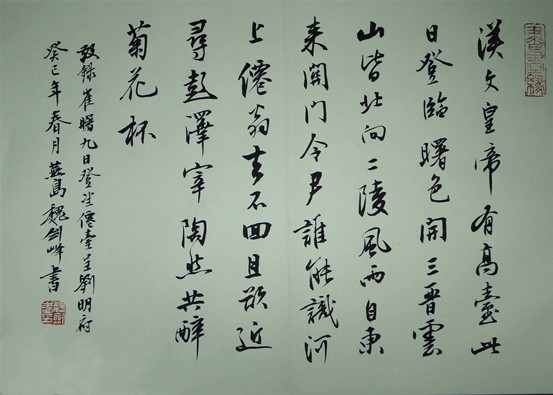 漢文皇帝有高臺此
日登臨曙色開三晉雲
山皆北向二陵風雨自東
来關門令尹誰能識河
上僊翁去不回且欲近
尋彭澤宰陶然共醉
菊花杯
敬錄崔曙九日登望僊臺呈劉明府
癸巳年春月島魏剑峰書